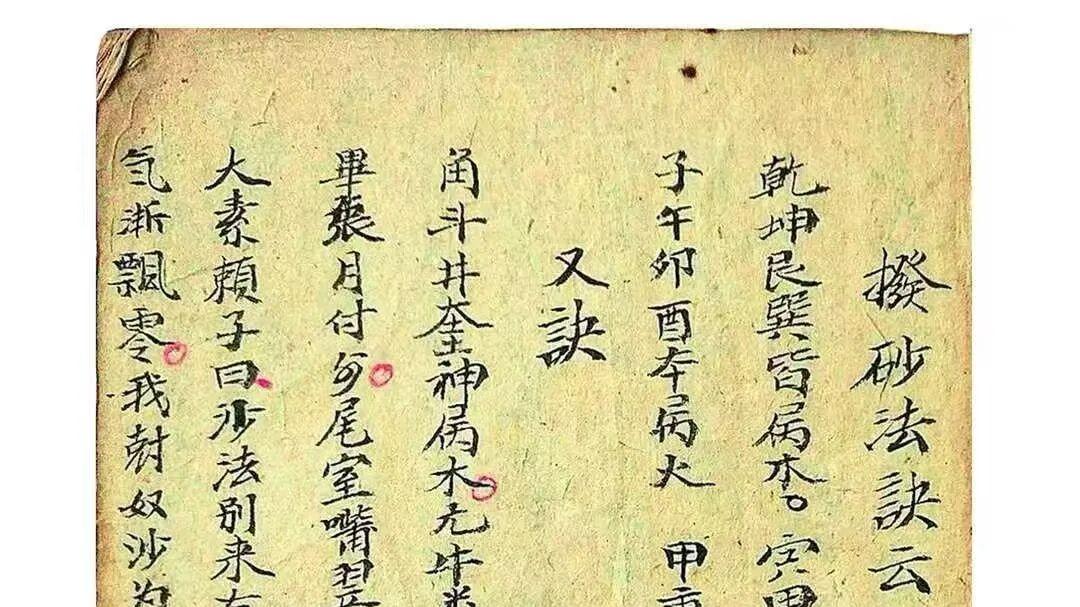 撥砂法訣云
乾坤艮巽皆属木。寅甲
子午卯酉本属火 甲
又訣
角斗井奎神属木。亢牛
畢張月付多。尾室嘴翌
大素頼子曰沙法别来左
気渐飄零。我尅奴沙为